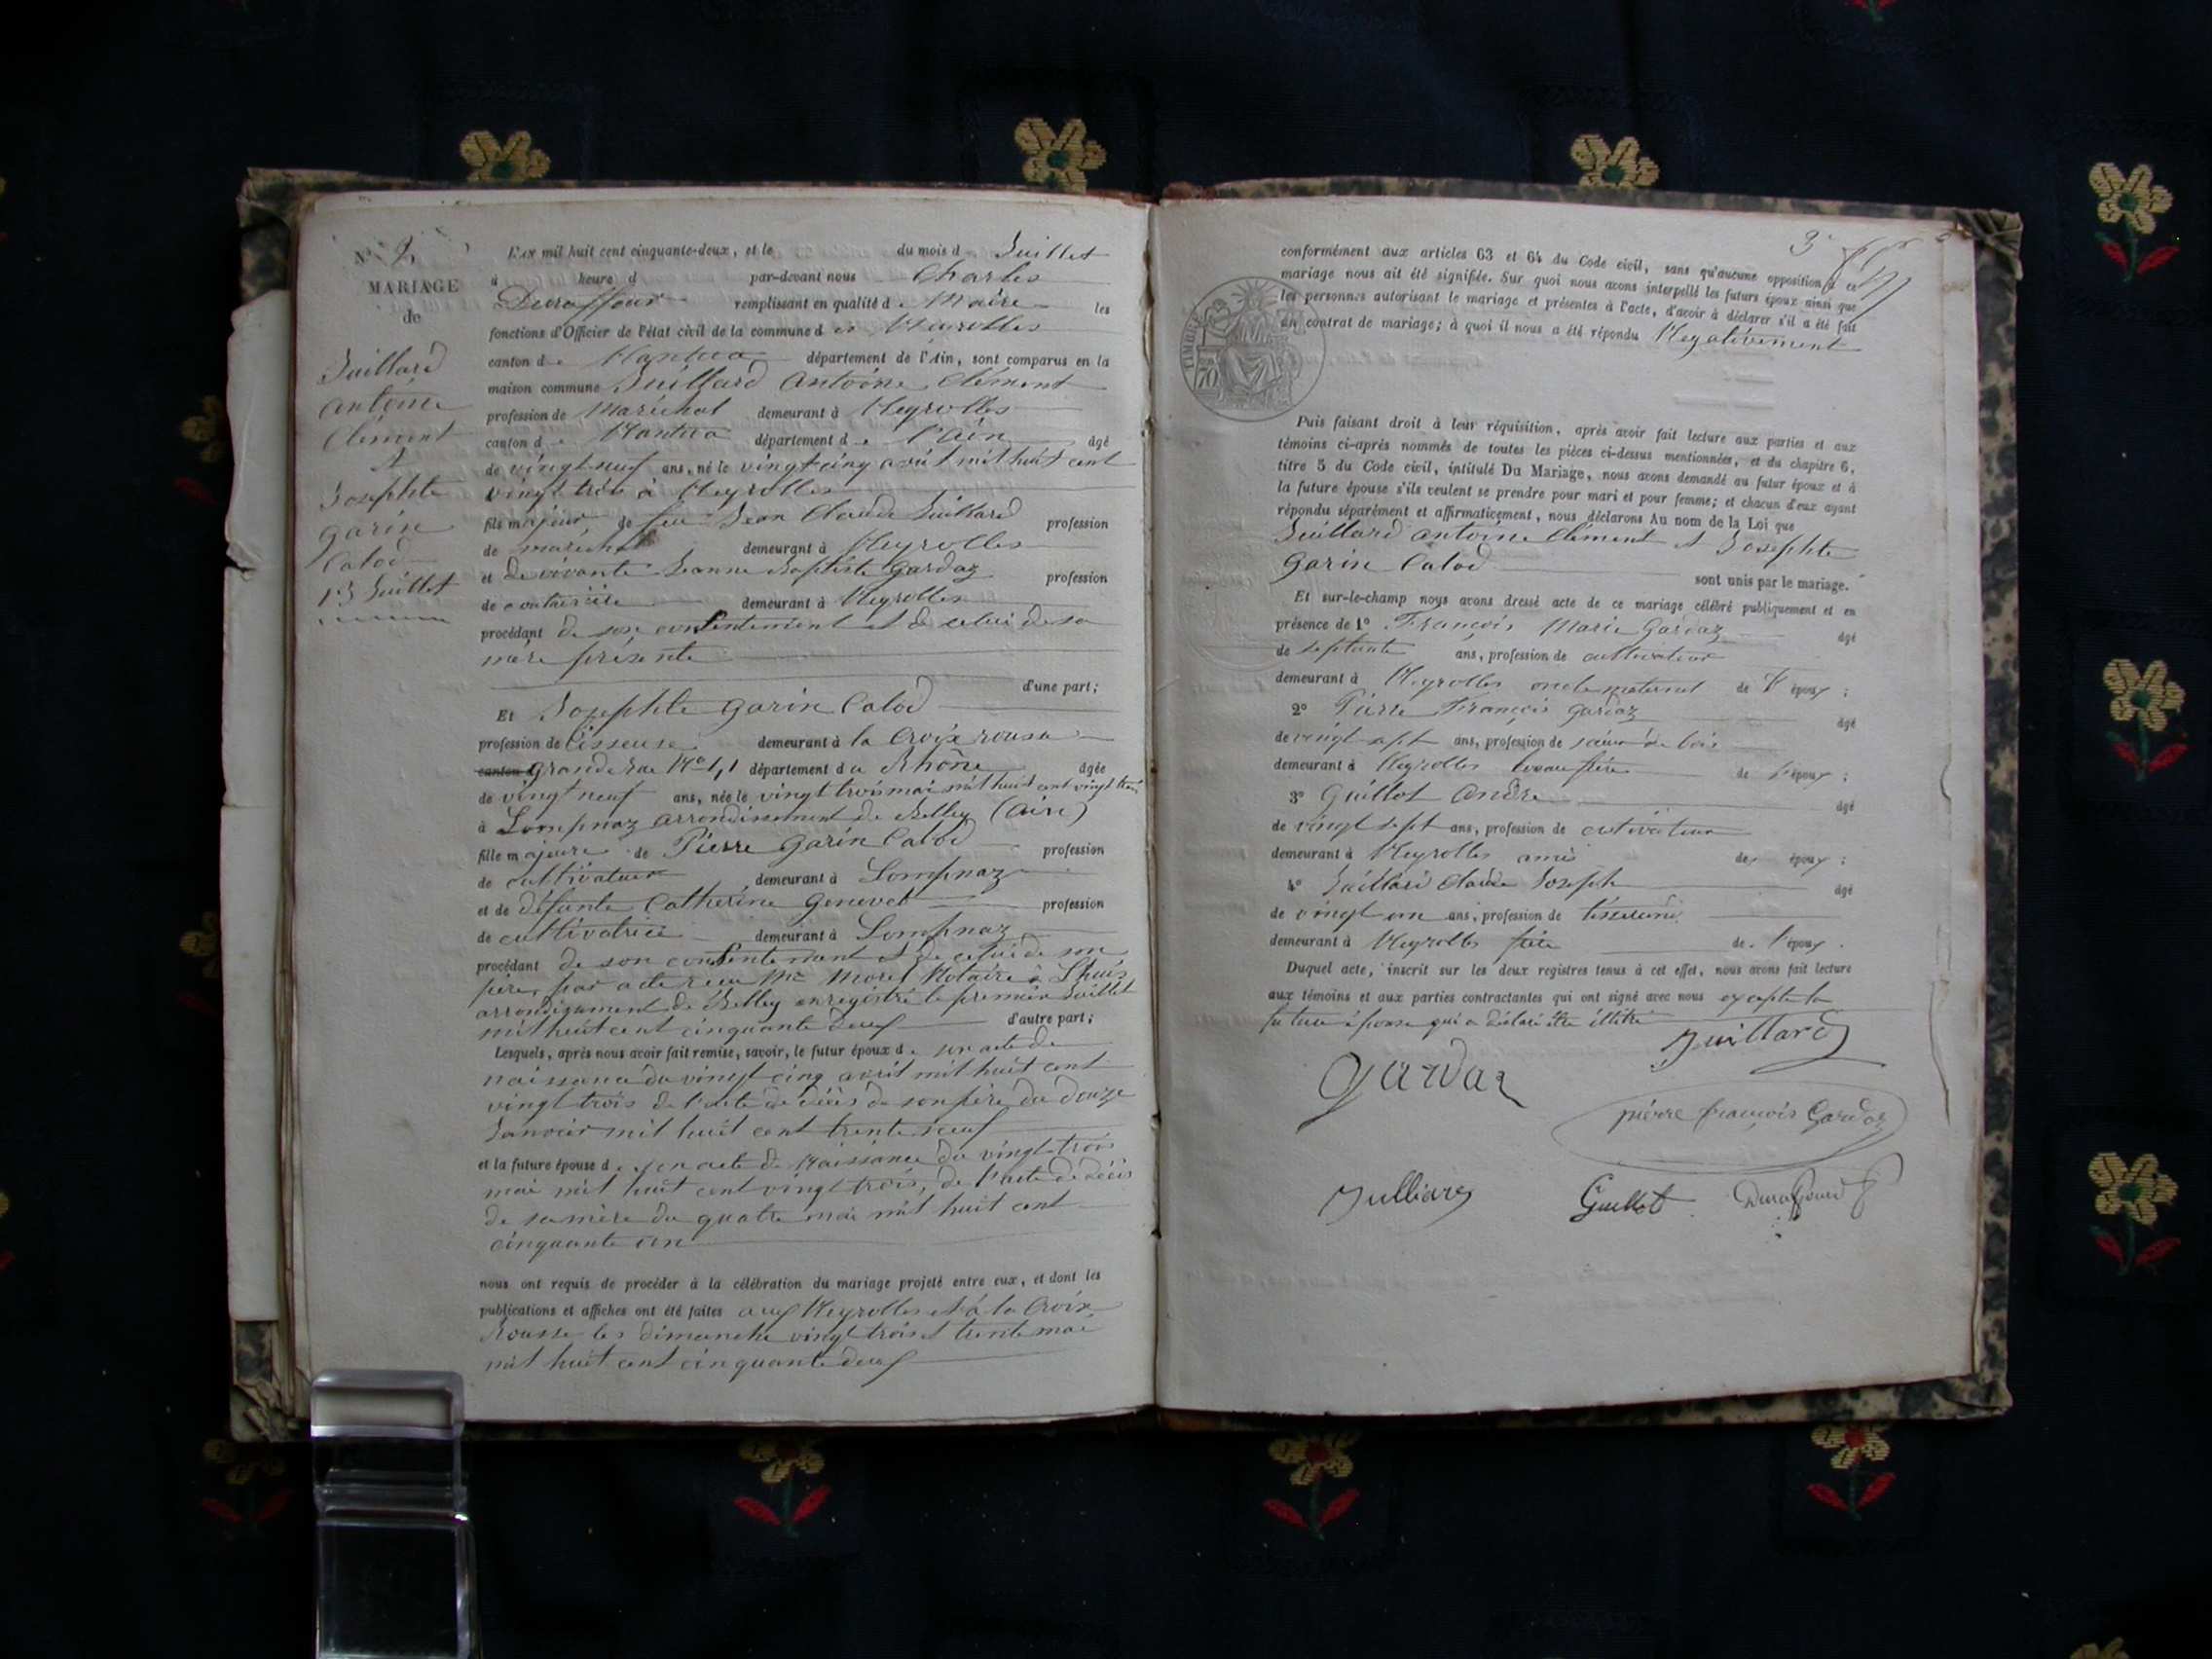 N° 2
MARIAGE
de
Juillard
Antoine
Clément
et
Josephte
Garin
Calod
13 Juillet
L'an mil huit cent cinquante-deux, et le du mois d Juillet
à heure d par-devant nous Charles
remplissant en qualité de Maire les
fonctions d'Officier de l'état civil de la commune des Neyrolles
canton de Nantua département de l'Ain, sont comparus en la
maison commune Juillard Antoine Clément
profession de Maréchal demeurant à Neyrolles
canton de Nantua département de l'Ain âgé
de vingt neuf ans, né le vingt cinq avril mil huit cent
vingt trois à Neyrolles
fils majeur de feu Jean Claude Juillard profession
de maréchal demeurant à Neyrolles
et de vivante Jeanne Baptiste Gardaz profession
de demeurant à Neyrolles
procédant de son consentement et de celui de sa
mère présente
d'une part;
Et Josephte Garin Calod
profession de Tisseuse demeurant à la Croix rousse
canton d grande rue N° département du Rhône âgée
de vingt neuf ans, née le vingt trois mai mil huit cent vingt trois
à Lompnaz arrondissement de Belley (Ain)
fille majeure de Pierre Garin Calod profession
de cultivateur demeurant à Lompnaz
et de défunte Catherine Genevet profession
de cultivatrice demeurant à Lompnaz
procédant de son consentement et de celui de son
père, par acte reçu Me Morel Notaire à Lhuis
arrondissement de Belley enregistré le premier Juillet
mil huit cent cinquante deux d'autre part;
Lesquels, après nous avoir fait remise, savoir, le futur époux de son acte de
naissance du vingt cinq avril mil huit cent
vingt trois de l'acte de décès de son père du douze
Janvier mil huit cent trente neuf
et la future épouse de son acte de Naissance du vingt trois
mai mil huit cent vingt trois, de l'acte de décès
de sa mère du quatre mai mil huit cent
cinquante un
nous ont requis de procéder à la célébration du mariage projeté entre eux, et dont les
publications et affiches ont été faites aux Neyrolles et à la Croix
Rousse les dimanche vingt trois et trente mai
mil huit cent cinquante deux
conformément aux articles 63 et 64 du Code civil, sans qu'aucune opposition à ce
mariage nous ait été signifiée. Sur quoi nous avons interpellé les futurs époux ainsi que
les personnes autorisant le mariage et présentes à l'acte, d'avoir à déclarer s'il a été fait
un contrat de mariage; à quoi il nous a été répondu Négativement
TIMBRE
70
Puis faisant droit à leur réquisition, après avoir fait lecture aux parties et aux
témoins ci-après nommés de toutes les pièces ci-dessus mentionnées, et du chapitre 6,
titre 5 du Code civil, intitulé Du Mariage, nous avons demandé au futur époux et à
la future épouse s'ils veulent se prendre pour mari et pour femme; et chacun d'eux ayant
répondu séparément et affirmativement, nous déclarons Au nom de la Loi que
Juillard Antoine Clément et Josephte
Garin Calod sont unis par le mariage.
Et sur-le-champ nous avons dressé acte de ce mariage célébré publiquement et en
présence de 1° François Marie Gardaz âgé
de septante ans, profession de cultivateur
demeurant à Neyrolles oncle maternel de l'époux;
2° Pierre François Gardaz âgé
de vingt sept ans, profession de scieur de bois
demeurant à Neyrolles beau frère de l'époux;
3° Guillot André âgé
de vingt sept ans, profession de cultivateur
demeurant à Neyrolles ami des époux;
4° Juillard Claude Joseph âgé
de vingt un ans, profession de tisserand
demeurant à Neyrolles frère de l'époux.
Duquel acte, inscrit sur les deux registres tenus à cet effet, nous avons fait lecture
aux témoins et aux parties contractantes qui ont signé avec nous excepté la
future épouse qui a déclaré être illitré
Juillard
Gardaz
pierre françois Gardaz
Julliard Guillot